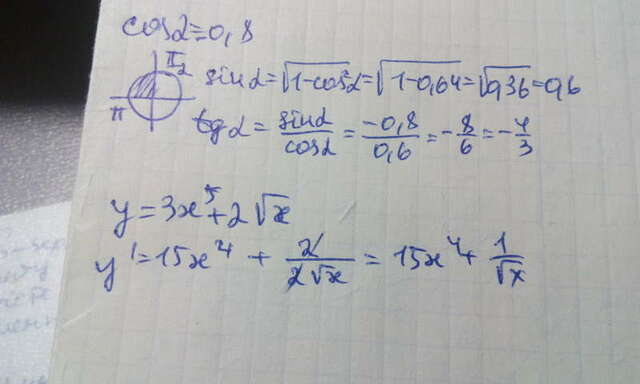 cosα=0,8
π/2
π
sinα=√(1-cos²α)=√(1-0,64)=√0,36=0,6
tgα = sinα/cosα = -0,8/0,6 = -8/6 = -4/3
y = 3x⁵+2√x
y'=15x⁴ + 2/(2√x) = 15x⁴+ 1/√x